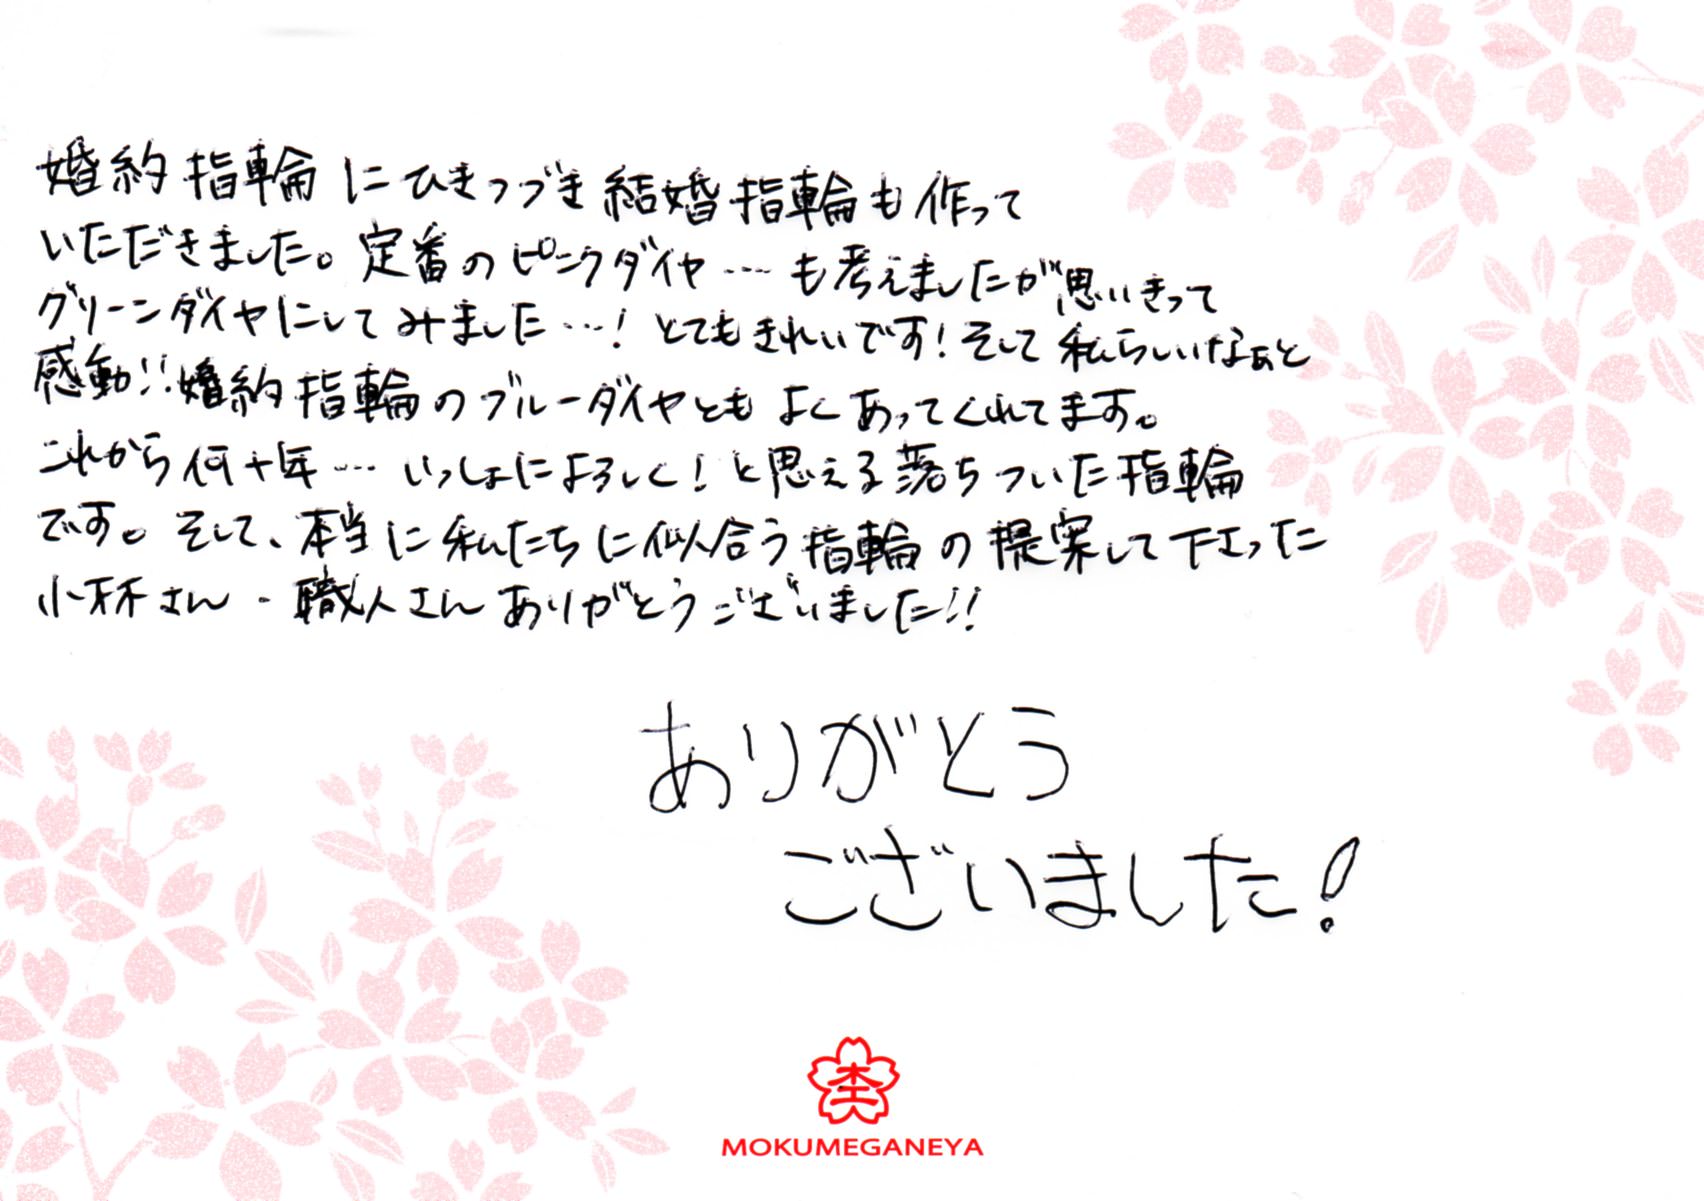 婚約指輪にひきつづき結婚指輪も作って
いただきました。定番のピンクダイヤ…も考えましたが思いきって
グリーンダイヤにしてみました…!とてもきれいです!そして私らしいなぁと
感動!!婚約指輪のブルーダイヤともよくあってくれてます。
これから何十年…いっしょによろしく!と思える落ちついた指輪
です。そして、本当に私たちに似合う指輪の提案して下さった
小林さん・職人さんありがとうございました!!
ありがとう
ございました!
杢
MOKUMEGANEYA